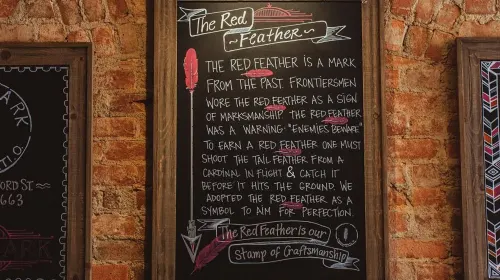 The Red
~Feather~
THE RED FEATHER IS A MARK
FROM THE PAST. FRONTIERSMEN
WORE THE RED FEATHER AS A SIGN
OF MARKSMANSHIP. THE RED FEATHER
WAS A WARNING: "ENEMIES BEWARE"
TO EARN A RED FEATHER ONE MUST
SHOOT THE TAIL FEATHER FROM A
CARDINAL IN FLIGHT & CATCH IT
BEFORE IT HITS THE GROUND. WE
ADOPTED THE RED FEATHER AS A
SYMBOL TO AIM FOR PERFECTION.
The Red Feather is our
Stamp of Craftsmanship
ARK
TIO.
FORD ST
663
ARK